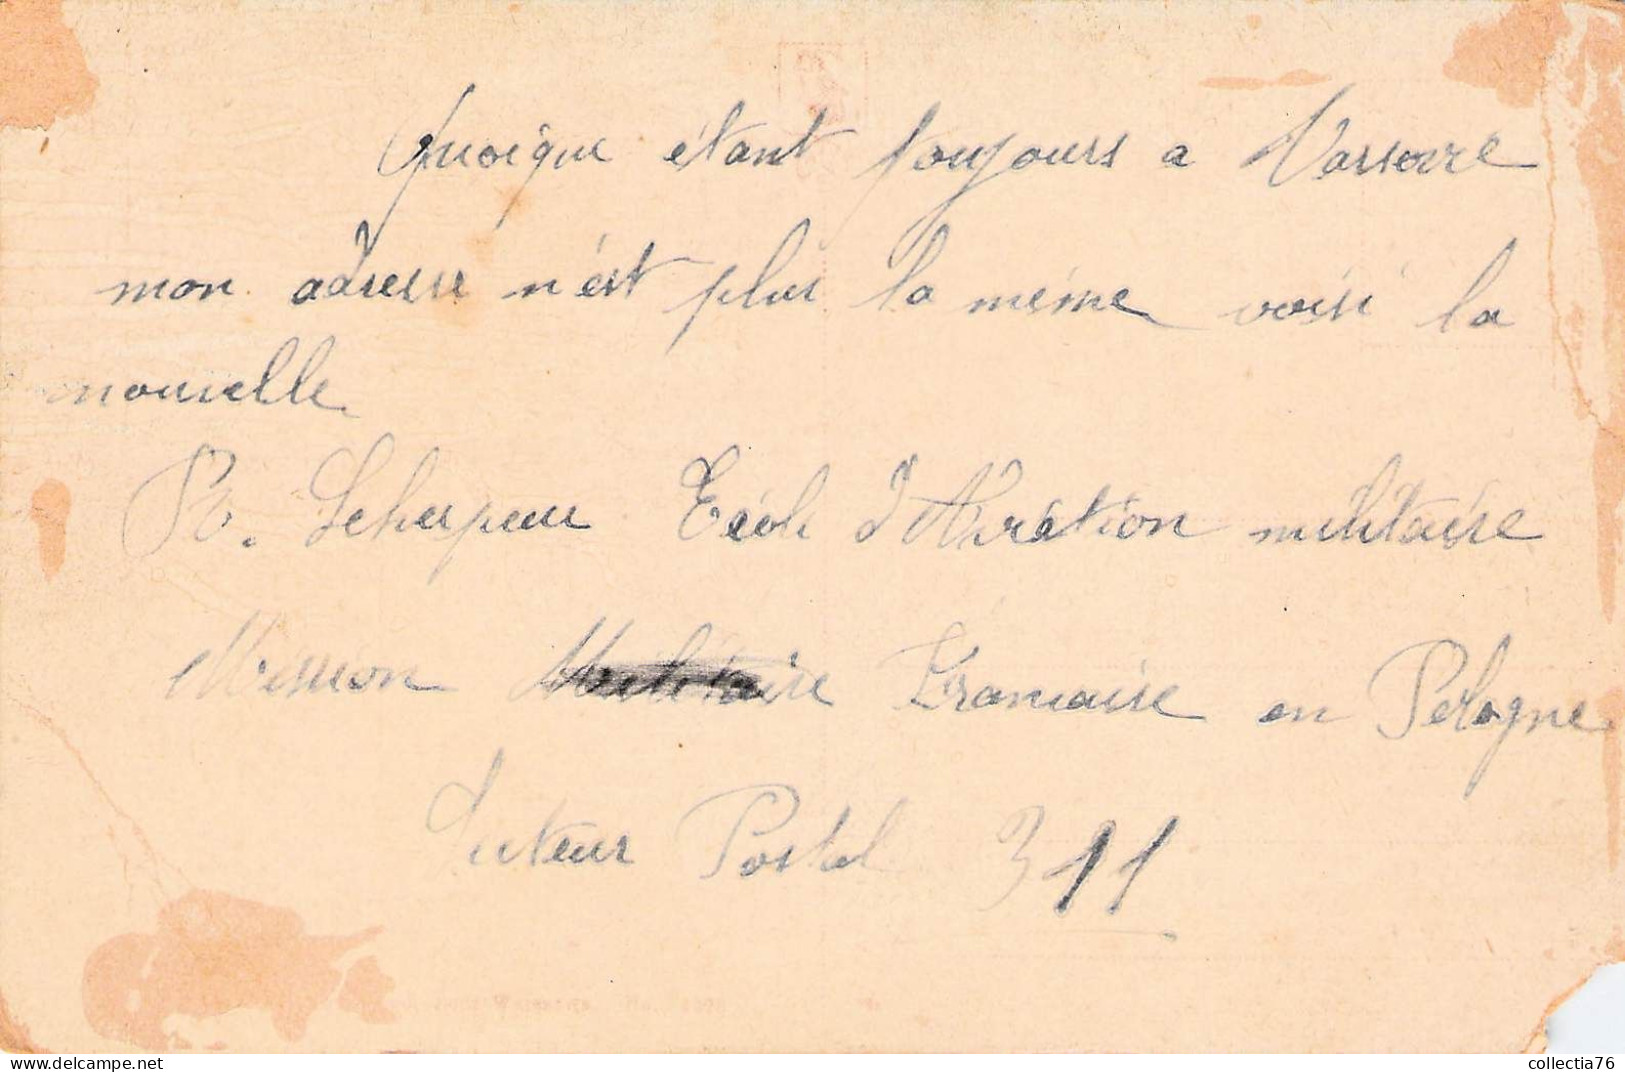 Quoique étant toujours a Varsovie
mon adresse n'est plus la même voisi la
nouvelle
Ecole d'Aviation militaire
Mission Militaire Francaise en Pologne
Secteur Postal 311
collectia76